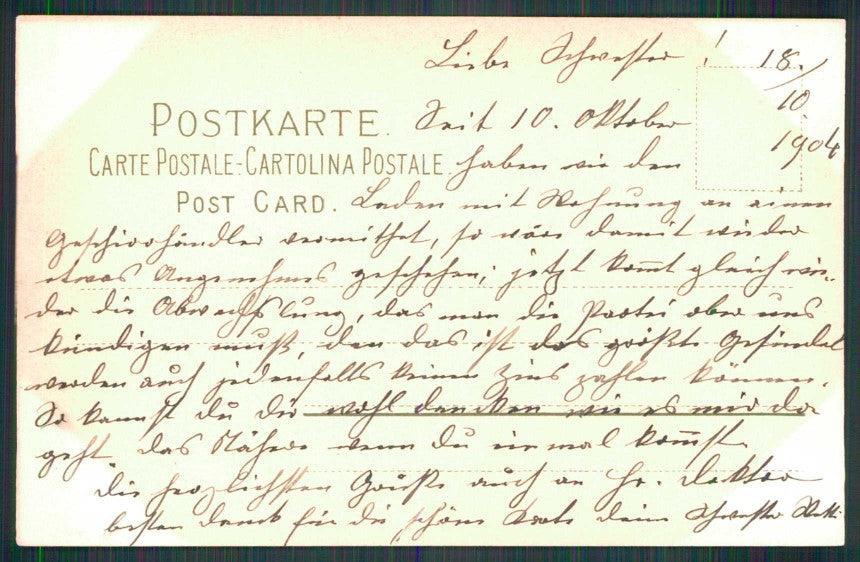 Liebe Schwester !
18./10 1904
POSTKARTE.
CARTE POSTALE-CARTOLINA POSTALE
POST CARD.
Seit 10. Oktober
haben wir den
Laden mit Wohnung an einen
Geschirrhändler vermithet, so wäre damit wieder
etwas Angenehmes geschehen; jetzt kommt gleich wie-
der die Abwechslung, das man die Partei ober uns
kündigen muß, den das ist das größte Gesindel
werden auch jedenfalls keinen Zins zahlen können.
So kannst du dir wohl dencken wie es mir da
geht, das Nähere wenn du einmal kommst.
Die herzlichsten Grüße auch an Hr. Doktor
besten Dank für die schöne Karte deine Schwester